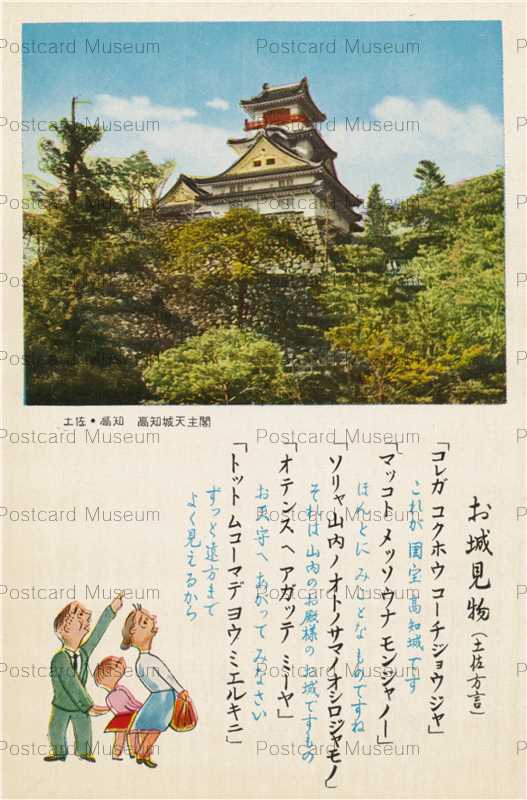 土佐・高知　高知城天主閣
お城見物（土佐方言）
「コレガ コクホウ コーチジョウジャ
これが 国宝 高知城です
「マッコト メッソウナ モンジャノー」
ほんとに みごとな ものですね
「ソリャ 山内ノ オトノサマノ オシロジャモノ」
それは 山内のお殿様の お城ですもの
「オテンスヘ アガッテ ミーヤ」
お天守へ あがって みなさい
「トット ムコーマデ ヨウ ミエルキニ」
ずっと 遠方まで
よく 見えるから
Postcard Museum